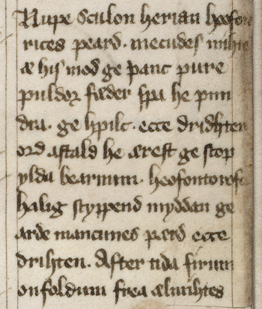 Nuþe sculon herian heofon
rices þeard. mecudes mihte
⁊ his mod ge þanc þurc
puldor fæder spa he pun
dra. ge hpilc. ecce drihten
ord astald he ærest ge scop
ylda bearnum. heofon to rofe
halig scyppend myddan ge
arde mancunes pærd ecce
drihten. Æfter tida firum
on foldum frea ælmihtes